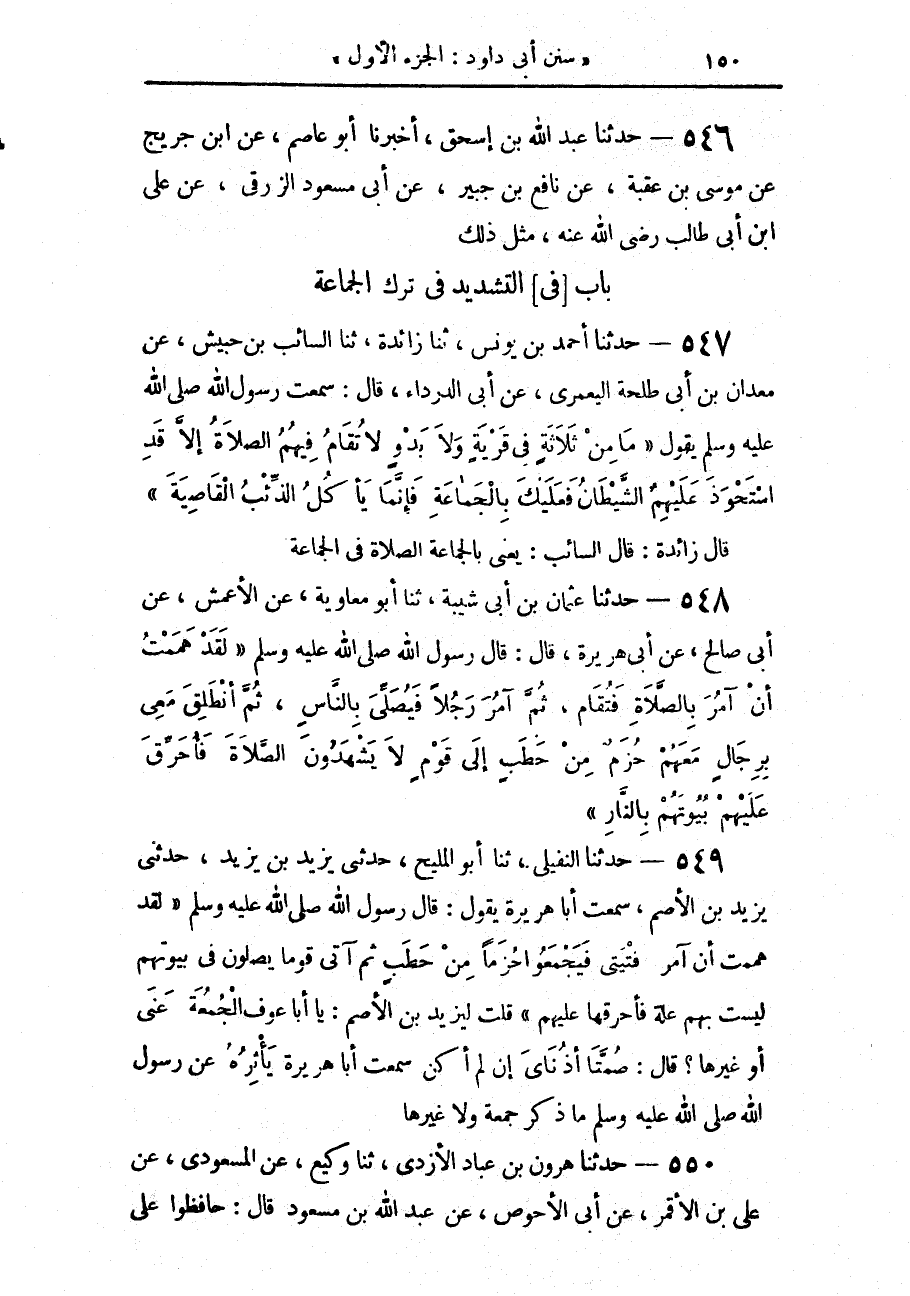 ١٥٠ « سنن أبى داود : الجزء الأول »
٥٤٦ — حدثنا عبد الله بن إسحق ، أخبرنا أبو عاصم ، عن ابن جريج
عن موسى بن عقبة ، عن نافع بن جبير ، عن أبى مسعود الزرقى ، عن على
ابن أبى طالب رضى الله عنه ، مثل ذلك
باب [فى] التشديد فى ترك الجماعة
٥٤٧ — حدثنا أحمد بن يونس ، ثنا زائدة ، ثنا السائب بن حبيش ، عن
معدان بن أبى طلحة اليعمرى ، عن أبى الدرداء ، قال : سمعت رسول الله صلى الله
عليه وسلم يقول « مَا مِنْ ثَلَاثَةٍ فِى قَرْيَةٍ وَلاَ بَدْوٍ لاَ تُقَامُ فِيهِمُ الصلاَةُ إلاَّ قَدِ
اسْتَحْوَذَ عَلَيْهِمُ الشَّيْطَانُ فَعَلَيْكَ بِالْجَمَاعَةِ فَإِنَّمَا يَأكُلُ الذِّئْبُ الْقَاصِيَةَ »
قال زائدة : قال السائب : يعنى بالجماعة الصلاة فى الجماعة
٥٤٨ — حدثنا عثمان بن أبى شيبة ، ثنا أبو معاوية ، عن الأعمش ، عن
أبى صالح ، عن أبى هريرة ، قال : قال رسول الله صلى الله عليه وسلم « لَقَدْ هَمَمْتُ
أنْ آمُرَ بِالصَّلَاةِ فَتُقَام ، ثُمَّ آمُرَ رَجُلاً فَيُصَلِّىَ بِالنَّاسِ ، ثُمَّ أنْطَلِقَ مَعِى
بِرِجَالٍ مَعَهُمْ حُزَمٌ مِنْ حَطَبٍ إلَى قَوْمٍ لاَ يَشْهَدُونَ الصَّلاَةَ فَأُحَرِّقَ
عَلَيْهِمْ بُيُوتَهُمْ بِالنَّارِ »
٥٤٩ — حدثنا النفيلى ، ثنا أبو المليح ، حدثنى يزيد بن يزيد ، حدثنى
يزيد بن الأصم ، سمعت أبا هريرة يقول : قال رسول الله صلى الله عليه وسلم « لقد
هممت أن آمر فِتْيَتِى فَيَجْمَعُوا حُزَماً مِنْ حَطَبٍ ثم آتى قوما يصلون فى بيوتهم
ليست بهم علة فأحرقها عليهم » قلت ليزيد بن الأصم : يا أبا عوف الْجُمُعَةَ عَنَى
أو غيرها ؟ قال : صُمَّتَا أذُنَاىَ إن لم أكن سمعت أبا هريرة يَأْثِرُهُ عن رسول
الله صلى الله عليه وسلم ما ذكر جمعة ولا غيرها
٥٥٠ — حدثنا هرون بن عباد الأزدى ، ثنا وكيع ، عن المسعودى ، عن
على بن الأقمر ، عن أبى الأحوص ، عن عبد الله بن مسعود قال : حافظوا على